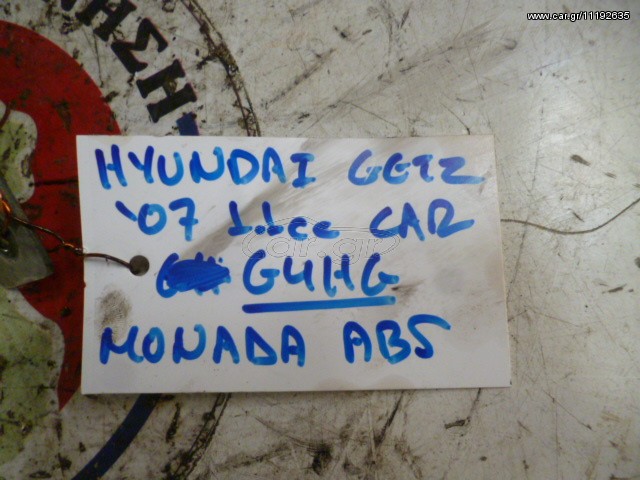 www.car.gr/11192635
ΗΣΗ
HYUNDAI GETZ
'07 1.1cc CAR
G4HG
MONADA ABS
car.gr